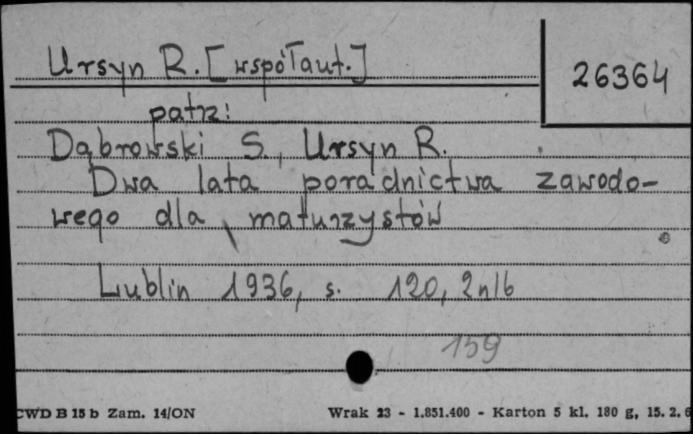 Ursyn R. [współaut.]
26364
patrz:
Dąbrowski S., Ursyn R.
Dwa lata poradnictwa zawodo-
wego dla maturzystów
Lublin 1936, s. 120, 2nlb
159
CWD B 15 b Zam. 14/ON Wrak 23 - 1.851.400 - Karton 5 kl. 180 g, 15. 2. 6